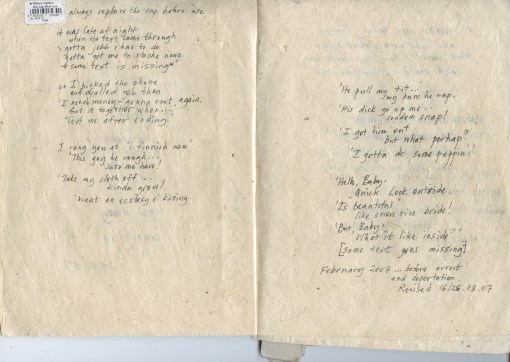 always replace the cap before use
it was late at night
when tha text came through
'gotta jobb i had to do
gotta get me to stacke none
& some text is missing*'
so I picked the phone...
and dialled rob then
'I need money - gonna rent again.
Got it together when...,
'text me after ending.
I rang you at 'i finnish now
This guy he rough...,
'Take my cloth off...
kinda growl!
'went on ecstasy o' kissing.
'He pull my tit...
my bum he rap.
'His dick go up me..
condom snap!
'I got him out
but what perhap?
'I gotta do some reppin'!'
'Hello, Baby.
Quick. Look outside.
'Is beautiful
like snow rice bride!
'But, Baby.
What it like inside?'
[some text goes missing]
February 2007... before arrest
and dissertation.
Revised 16/28.03.07